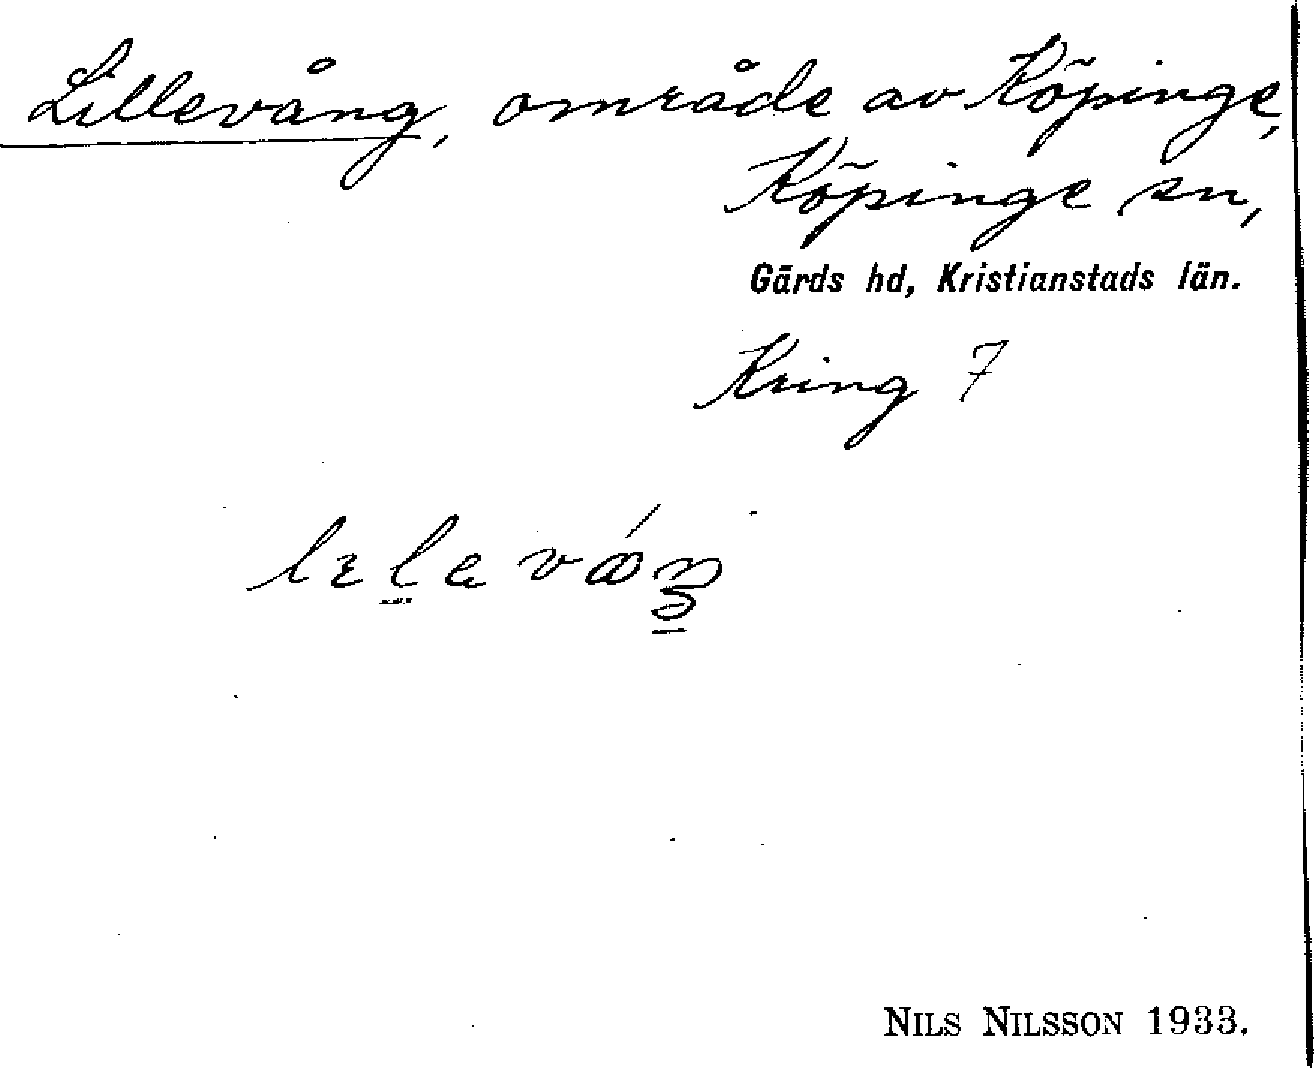 Lillevång, område av Köpinge,
Köpinge sn,
Gärds hd, Kristianstads län.
Kring 7
NILS NILSSON 1933.